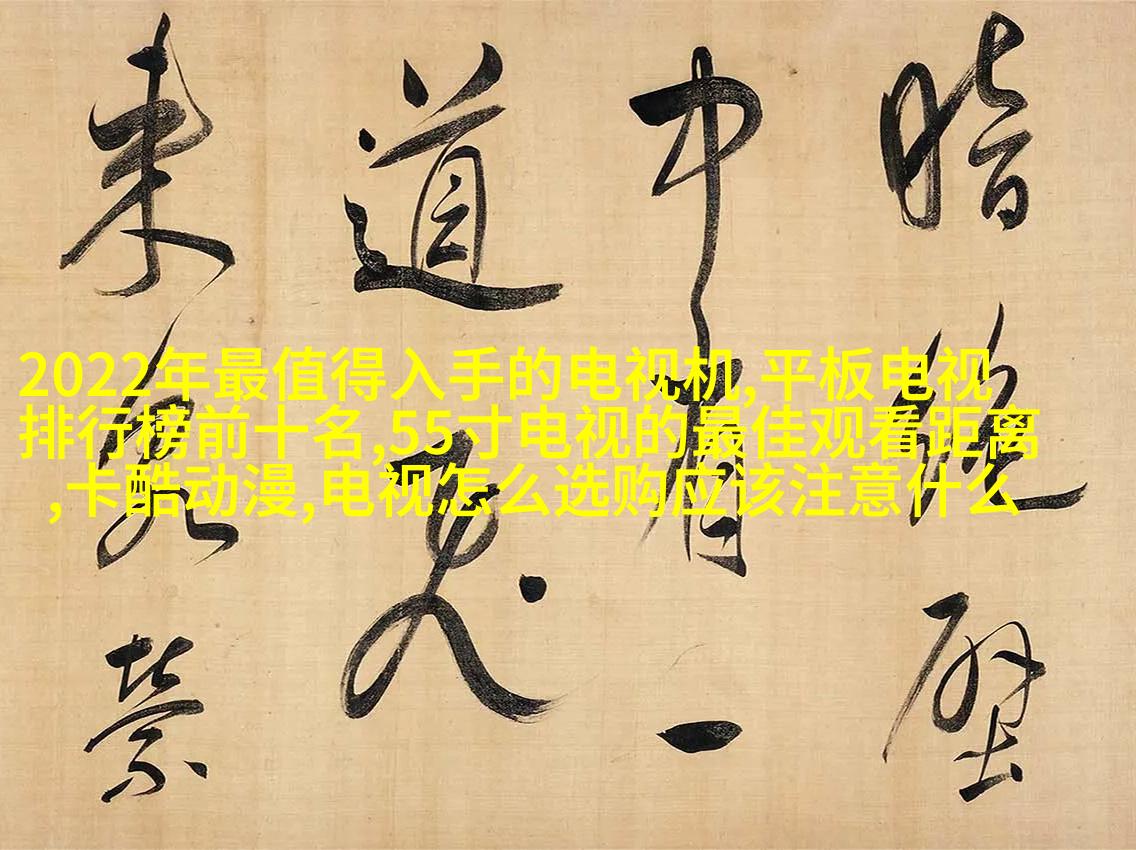 2022年最值得入手的电视机,平板电视
排行榜前十名,55寸电视的最佳观看距离
,卡酷动漫,电视怎么选购应该注意什么
暗絕壁
中有一
道
来紫